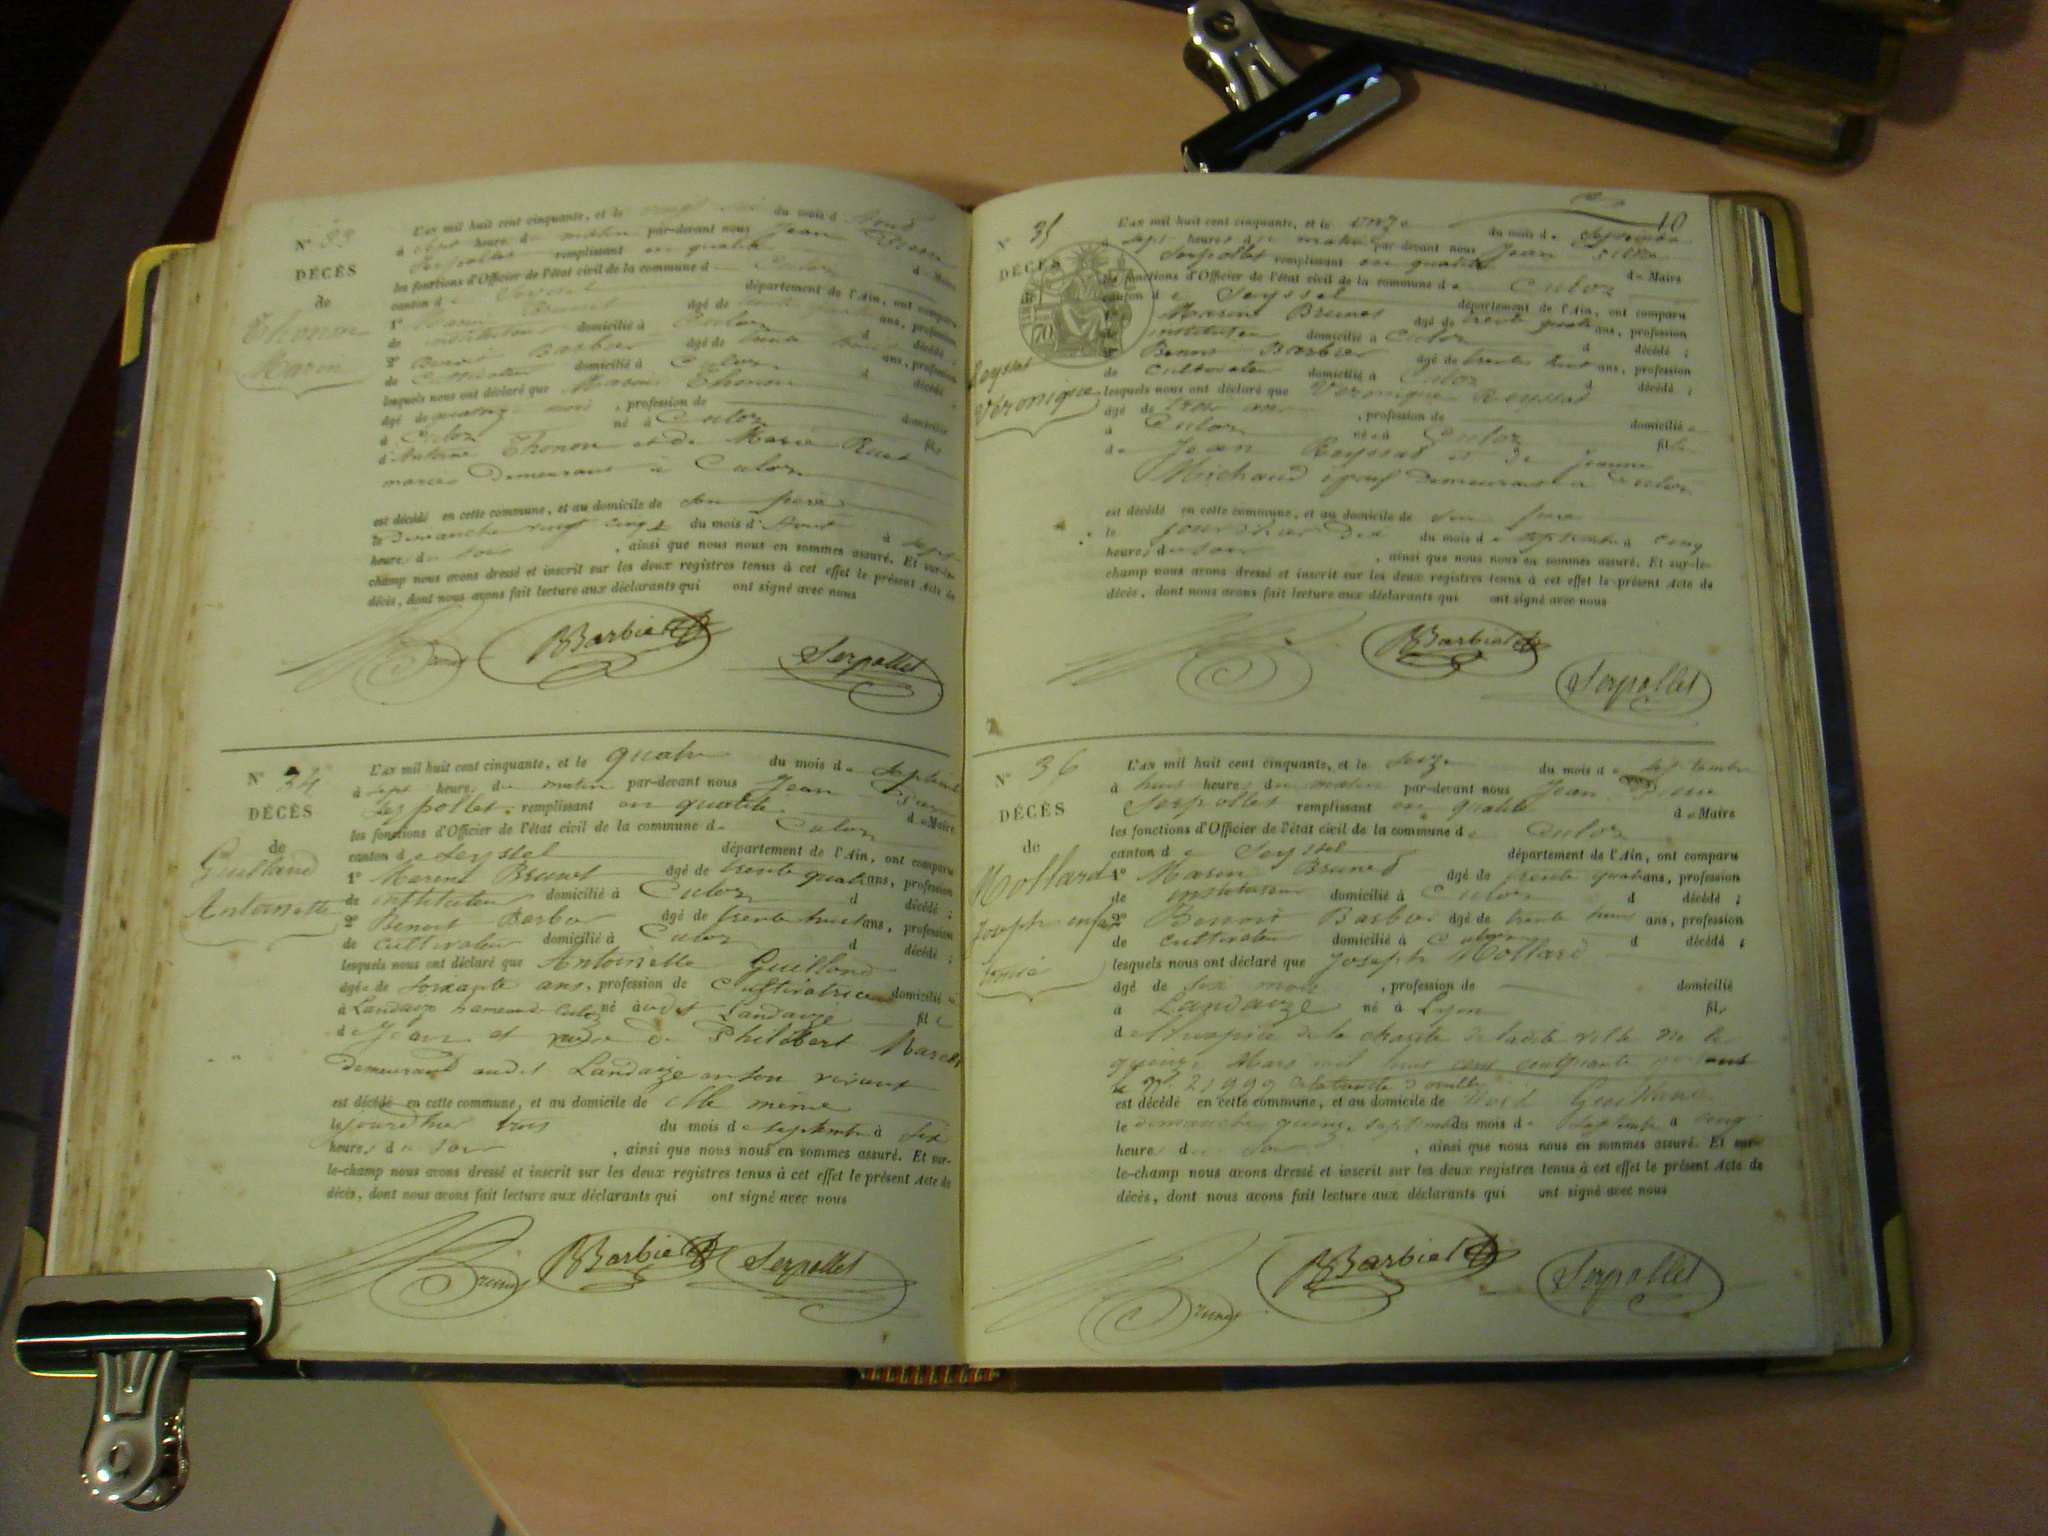 N° 33
DÉCÈS
de
Thonon
Marin
L'AN mil huit cent cinquante, et le vingt six du mois d Aout
à sept heure du matin par-devant nous Jean Pierre
Serpollet remplissant en qualité d Maire
les fonctions d'Officier de l'état civil de la commune de Culoz
canton de Seyssel département de l'Ain, ont comparu
1° Marin Brunet âgé de trente quatre ans, profession
de instituteur domicilié à Culoz d décédé ;
2° Benoit Barbier âgé de trente huit ans, profession
de Cultivateur domicilié à Culoz d décédé
lesquels nous ont déclaré que Marin Thonon
âgé de mois , profession de domicilié
à Culoz né à Culoz fil
d'Antoine Thonon et de Marie
mariés demeurant à Culoz
est décédé en cette commune, et au domicile de son père
le Dimanche vingt cinq du mois d'Aout à sept
heure du soir , ainsi que nous nous en sommes assuré. Et sur-le-
champ nous avons dressé et inscrit sur les deux registres tenus à cet effet le présent Acte de
décès, dont nous avons fait lecture aux déclarants qui ont signé avec nous
Brunet BBarbier Serpollet
N° 34
DÉCÈS
de
Guilland
Antoinette
L'AN mil huit cent cinquante, et le quatre du mois de Septembre
à sept heure du matin par-devant nous Jean Pierre
Serpollet remplissant en qualité de Maire
les fonctions d'Officier de l'état civil de la commune de Culoz
canton de Seyssel département de l'Ain, ont comparu
1° Marin Brunet âgé de trente quatre ans, profession
de instituteur domicilié à Culoz d décédé ;
2° Benoit Barbier âgé de trente huit ans, profession
de cultivateur domicilié à Culoz d décédé ;
lesquels nous ont déclaré que Antoinette Guilland
âgée de soixante ans, profession de Cultivatrice domicilié
à Landaize hameau Culoz né audit Landaize fil
de Jean et veuve de Philibert
demeurant audit Landaize en son vivant
est décédé en cette commune, et au domicile de Elle même
le jourd'hier trois du mois de septembre à six
heures du soir , ainsi que nous nous en sommes assuré. Et sur-
le-champ nous avons dressé et inscrit sur les deux registres tenus à cet effet le présent Acte de
décès, dont nous avons fait lecture aux déclarants qui ont signé avec nous
Brunet BBarbier Serpollet
10
N° 35
DÉCÈS
de
Reyssat
Véronique
L'AN mil huit cent cinquante, et le onze du mois de Septembre
à sept heures du matin par-devant nous Jean Pierre
Serpollet remplissant en qualité de Maire
les fonctions d'Officier de l'état civil de la commune de Culoz
canton de Seyssel département de l'Ain, ont comparu
1° Marin Brunet âgé de trente quatre ans, profession
de instituteur domicilié à Culoz d décédé ;
2° Benoit Barbier âgé de trente huit ans, profession
de cultivateur domicilié à Culoz d décédé ;
lesquels nous ont déclaré que Véronique Reyssat
âgé de trois ans , profession de domicilié
à Culoz né à Culoz fil
de Jean Reyssat et de Jeanne
Michaud époux demeurant à Culoz
est décédé en cette commune, et au domicile de son père
le jourd'hier dix du mois de septembre à cinq
heures du soir , ainsi que nous nous en sommes assuré. Et sur-le-
champ nous avons dressé et inscrit sur les deux registres tenus à cet effet le présent Acte de
décès, dont nous avons fait lecture aux déclarants qui ont signé avec nous
BBarbier Serpollet
N° 36
DÉCÈS
de
Mollard
Joseph
L'AN mil huit cent cinquante, et le seize du mois de septembre
à huit heure du matin par-devant nous Jean Pierre
Serpollet remplissant en qualité de Maire
les fonctions d'Officier de l'état civil de la commune de Culoz
canton de Seyssel département de l'Ain, ont comparu
1° Marin Brunet âgé de trente quatre ans, profession
de instituteur domicilié à Culoz d décédé ;
2° Benoit Barbier âgé de trente huit ans, profession
de cultivateur domicilié à Culoz d décédé ;
lesquels nous ont déclaré que Joseph Mollard
âgé de six mois , profession de domicilié
à Landaize né à Lyon fil
de l'hospice de la charité de ladite ville né le
quinze Mars mil huit cent cinquante
le n° 21999
est décédé en cette commune, et au domicile de Guilland
le dimanche quinze septembre du mois de septembre à cinq
heures du soir , ainsi que nous nous en sommes assuré. Et sur-
le-champ nous avons dressé et inscrit sur les deux registres tenus à cet effet le présent Acte de
décès, dont nous avons fait lecture aux déclarants qui ont signé avec nous
Brunet BBarbier Serpollet